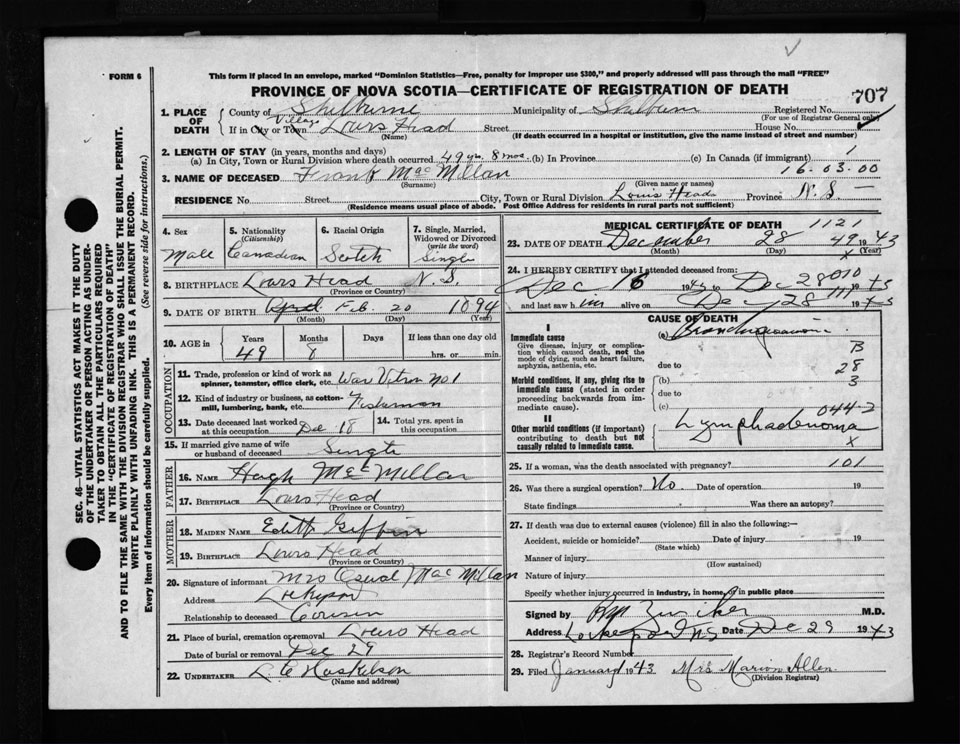 FORM 6
This form if placed in an envelope, marked "Dominion Statistics—Free, penalty for improper use $300," and properly addressed will pass through the mail "FREE"
PROVINCE OF NOVA SCOTIA—CERTIFICATE OF REGISTRATION OF DEATH
707
1. PLACE OF DEATH
County of Shelburne Municipality of Shelburne Registered No.
(For use of Registrar General only)
If in City or Town Village Louis Head (Name) Street House No.
(If death occurred in a hospital or institution, give the name instead of street and number)
2. LENGTH OF STAY (in years, months and days)
(a) In City, Town or Rural Division where death occurred 49 yrs. 8 mos. (b) In Province (c) In Canada (if immigrant) 1
16.03.00
3. NAME OF DECEASED Frank MacMillan
(Surname) (Given name or names)
RESIDENCE No. Street City, Town or Rural Division Louis Head Province N.S.
(Residence means usual place of abode. Post Office Address for residents in rural parts not sufficient)
4. Sex Male
5. Nationality (Citizenship) Canadian
6. Racial Origin Scotch
7. Single, Married, Widowed or Divorced (write the word) Single
8. BIRTHPLACE Louis Head N.S.
(Province or Country)
9. DATE OF BIRTH Feb. 20 1894
(Month) (Day) (Year)
10. AGE in Years 49 Months 8 Days If less than one day old hrs. or min.
OCCUPATION
11. Trade, profession or kind of work as spinner, teamster, office clerk, etc. War No 1
12. Kind of industry or business, as cotton-mill, lumbering, bank, etc. Fisherman
13. Date deceased last worked at this occupation Dec 18
14. Total yrs. spent in this occupation
15. If married give name of wife or husband of deceased Single
FATHER
16. NAME Hugh McMillan
17. BIRTHPLACE Louis Head
(Province or Country)
MOTHER
18. MAIDEN NAME Edith Giffin
19. BIRTHPLACE Louis Head
(Province or Country)
20. Signature of informant Mrs MacMillan
Address Lockeport
Relationship to deceased Cousin
21. Place of burial, cremation or removal Louis Head
Date of burial or removal Dec 29
22. UNDERTAKER
(Name and address)
MEDICAL CERTIFICATE OF DEATH 1121
23. DATE OF DEATH December 28 1943
49
(Month) (Day) (Year)
x
24. I HEREBY CERTIFY that I attended deceased from:
Dec 16 1943 to Dec 28 1943
010
and last saw him alive on Dec 28 1943
111
CAUSE OF DEATH
I
Immediate cause
Give disease, injury or complication which caused death, not the mode of dying, such as heart failure, asphyxia, asthenia, etc.
(a)
due to
B
28
3
Morbid conditions, if any, giving rise to immediate cause (stated in order proceeding backwards from immediate cause).
(b)
due to
(c)
II
044-2
Other morbid conditions (if important) contributing to death but not causally related to immediate cause.
Lymphadenoma
x
25. If a woman, was the death associated with pregnancy? 101
26. Was there a surgical operation? No. Date of operation 19
State findings Was there an autopsy?
27. If death was due to external causes (violence) fill in also the following:—
Accident, suicide or homicide? Date of injury 19
(State which)
Manner of injury
(How sustained)
Nature of injury
Specify whether injury occurred in industry, in home, or in public place
Signed by Zwicker M.D.
Address Lockeport N.S. Date Dec 29 1943
28. Registrar's Record Number
29. Filed January 1943 Mrs Marion Allen
(Division Registrar)
SEC. 46—VITAL STATISTICS ACT MAKES IT THE DUTY
OF THE UNDERTAKER OR PERSON ACTING AS UNDER-
TAKER TO OBTAIN ALL THE PARTICULARS REQUIRED
IN THE "CERTIFICATE OF REGISTRATION OF DEATH"
AND TO FILE THE SAME WITH THE DIVISION REGISTRAR WHO SHALL ISSUE THE BURIAL PERMIT.
WRITE PLAINLY WITH UNFADING INK. THIS IS A PERMANENT RECORD.
Every item of information should be carefully supplied. (See reverse side for instructions.)